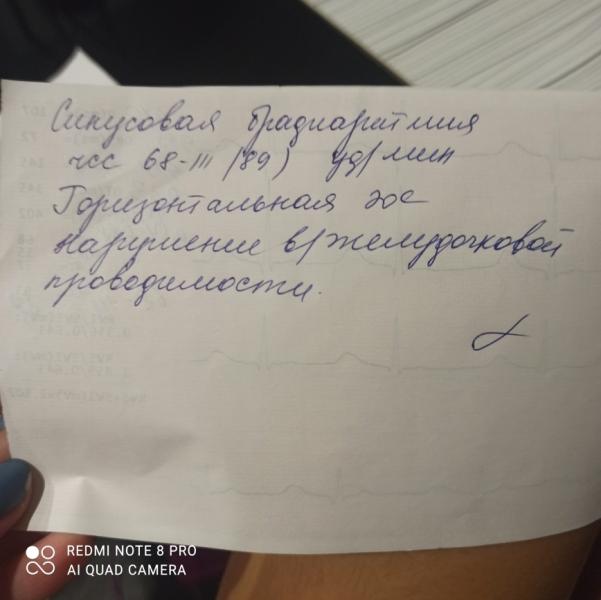 Синусовая брадиаритмия
чсс 68-111 (89) уд/мин
Горизонтальная эос
Нарушение в/желудочковой
проводимости.
REDMI NOTE 8 PRO
AI QUAD CAMERA